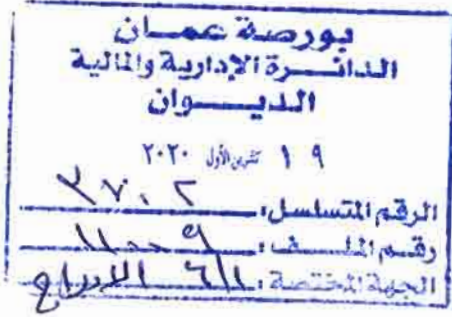 بورصة عمان
الدائرة الإدارية والمالية
الديوان
١٩ تشرين الأول ٢٠٢٠
الرقم المتسلسل: ٣٧٠٢
رقم الملف:
الجهة المختصة: الإدراج